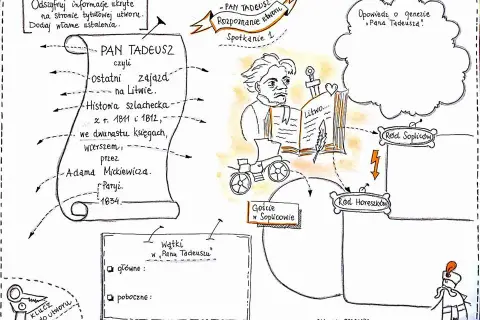 Odszyfruj informacje ukryte
na stronie tytułowej utworu.
Dodaj własne ustalenia.
"PAN TADEUSZ"
Rozpoznanie utworu
Spotkanie 1
Opowiedz o genezie
"Pana Tadeusza".
PAN TADEUSZ
czyli
ostatni zajazd
na Litwie.
Historia szlachecka
z r. 1811 i 1812,
we dwunastu księgach,
wierszem,
przez
Adama Mickiewicza.
Paryż.
1834.
Litwo...
Ród Sopliców
Ród Horeszków
Goście
w Soplicowie
Wątki
w "Panu Tadeuszu"
główne:
poboczne:
KLUCZ
do utworu